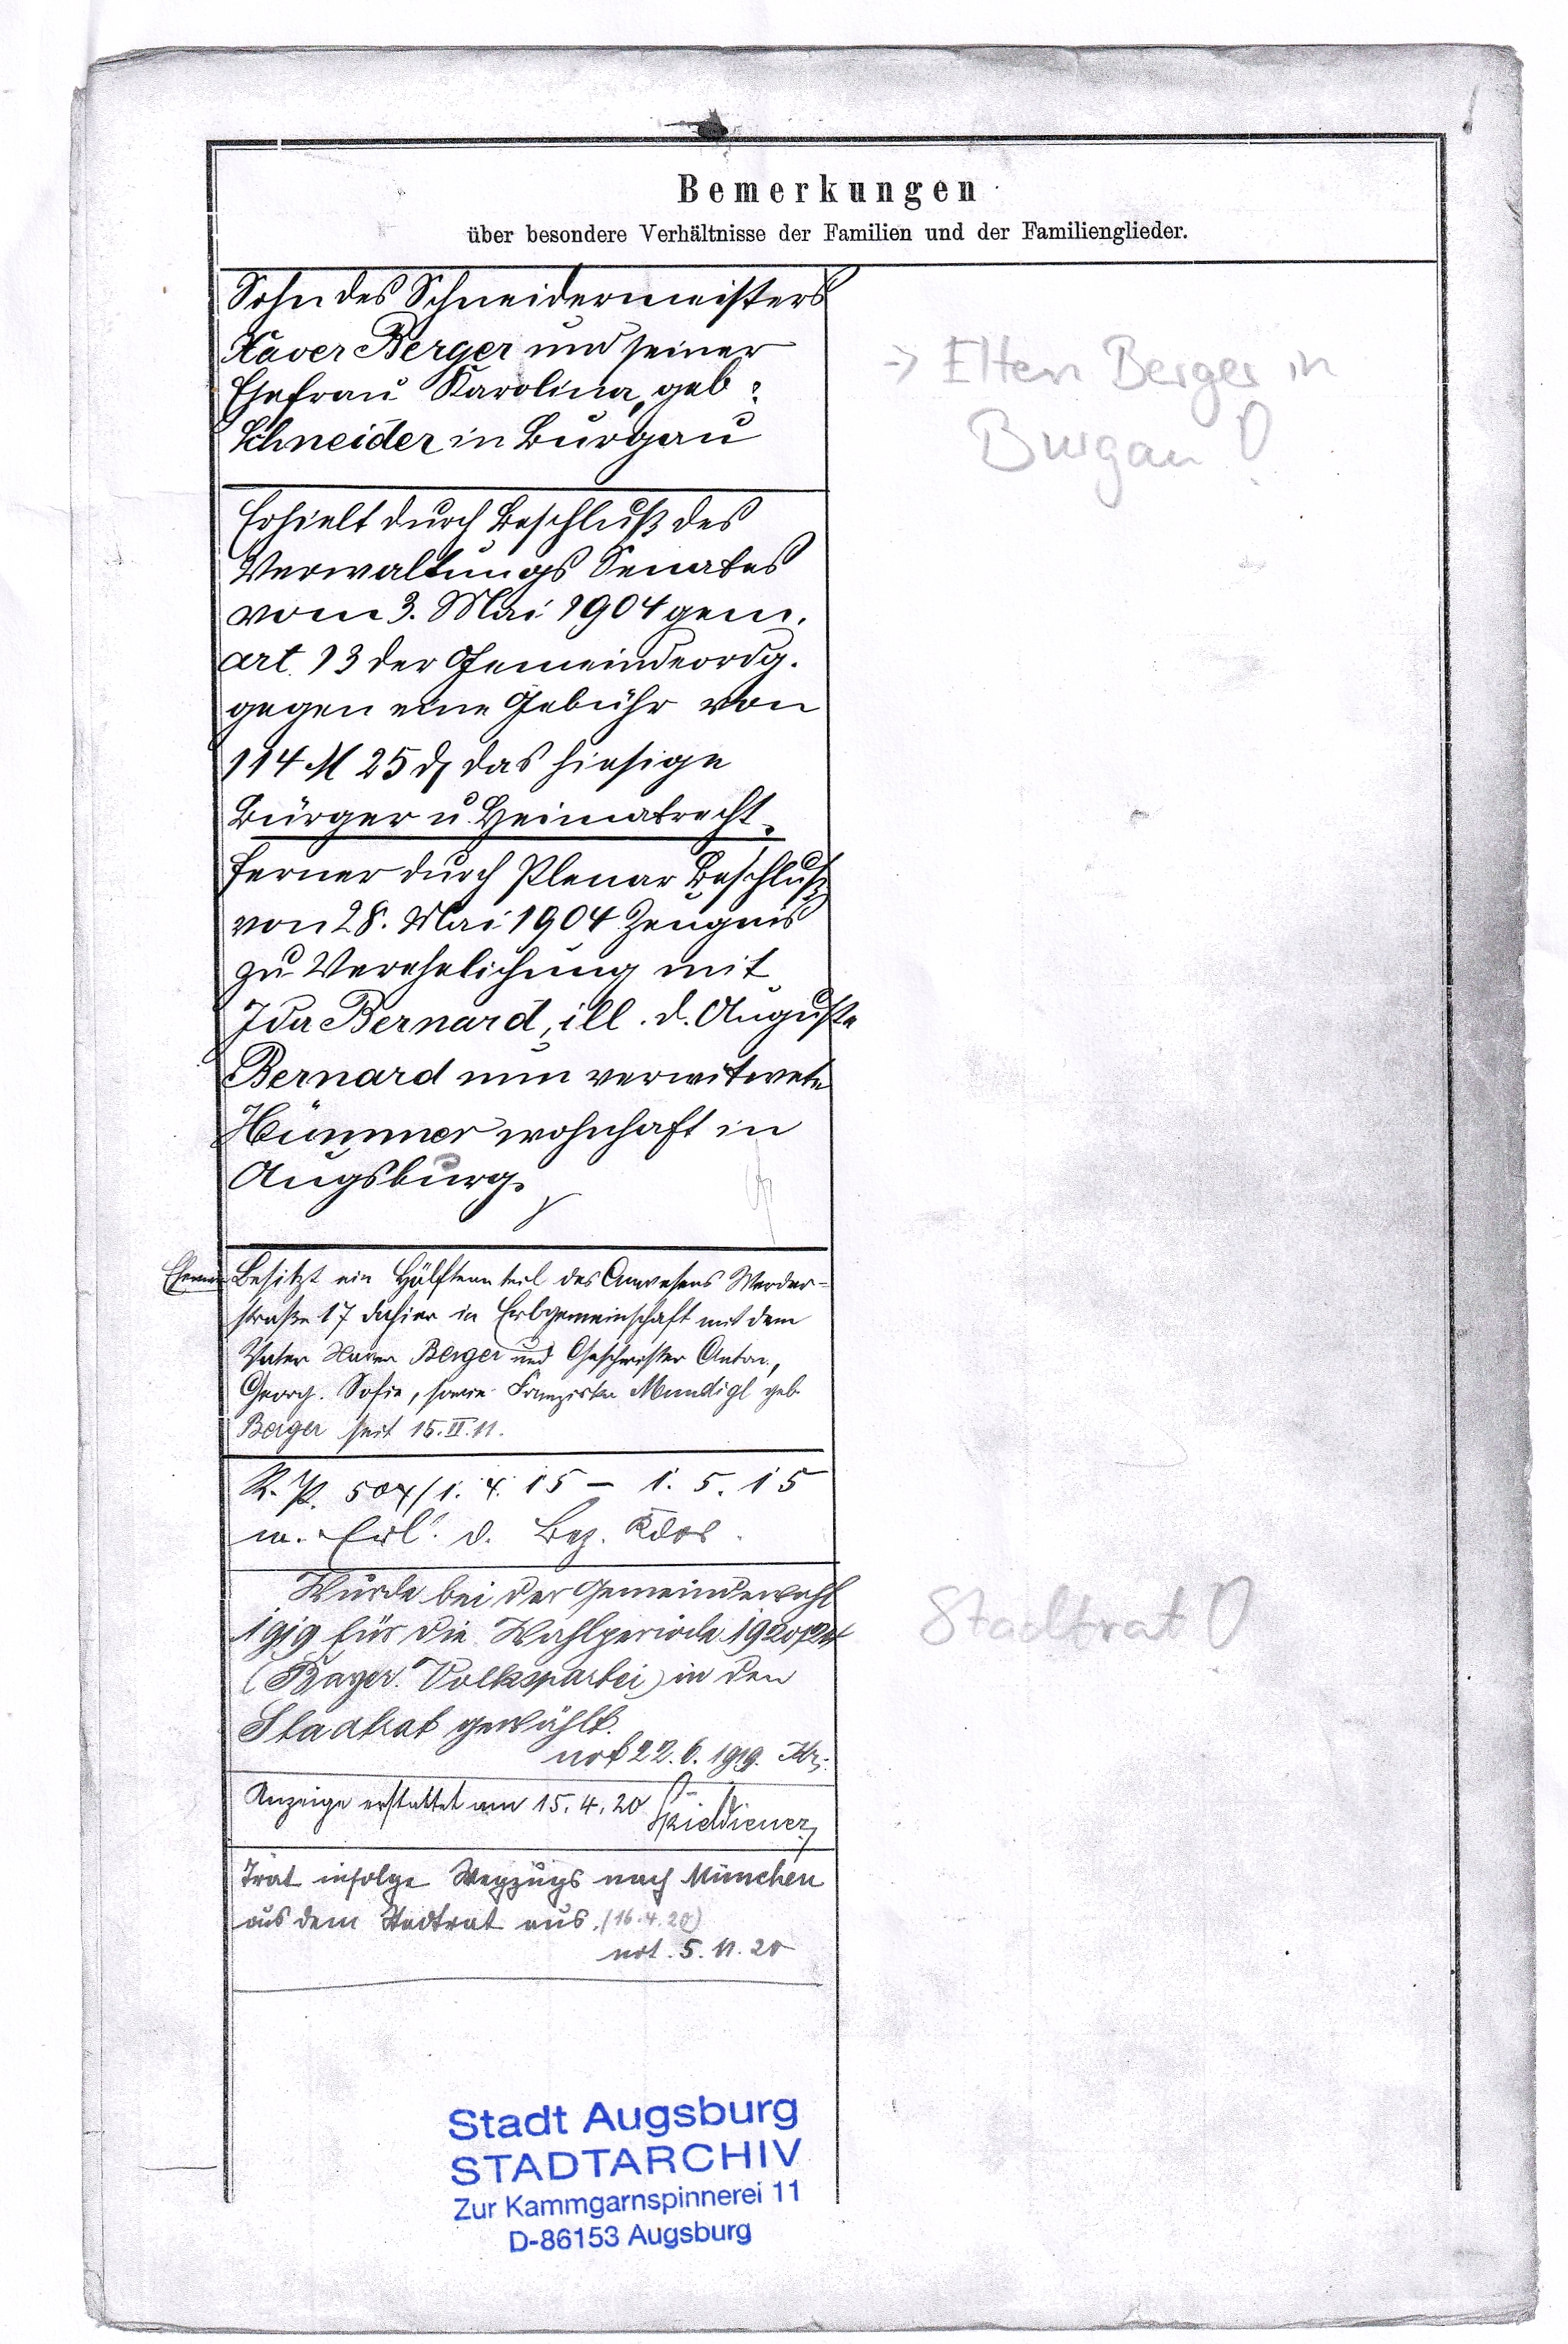 Bemerkungen
über besondere Verhältnisse der Familien und der Familienglieder.
Sohn des Schneidermeisters
Xaver Berger und seiner
Ehefrau Karolina, geb:
Schneider in Burgau
→ Eltern Berger in
Burgau !
Erhielt durch Beschluß des
Verwaltungs Senates
vom 3. Mai 1904 gem.
art. 13 der Gemeindeordg.
gegen eine Gebühr von
114 M 25 ₰ das hiesige
Bürger u. Heimatrecht.
ferner durch Plenar Beschluß
von 28. Mai 1904 Zeugnis
zu Verehelichung mit
Ida Bernard, ill. d. Auguste
Bernard nun verwitwete
Hümmer wohnhaft in
Augsburg.
Besitzt ein Hälfteanteil des Anwesens Werder-
straße 17 dahier in Erbgemeinschaft mit dem
Vater Xaver Berger und Geschwister Anton,
Georg. Sofie, sowie Franziska Mundigl geb.
Berger seit 15. II. 11.
R. P. 504/1. 4. 15 – 1. 5. 15
m. Erl. d. Bez. Kdos.
Wurde bei der Gemeindewahl
1919 für die Wahlperiode 1920/24
(Bayer. Volkspartei) in den
Stadtrat gewählt.
not 22. 6. 1919.
Stadtrat !
Anzeige erstattet am 15. 4. 20
Trat infolge Wegzugs nach München
aus dem Stadtrat aus. (16. 4. 20)
not. 5. 11. 20
Stadt Augsburg
STADTARCHIV
Zur Kammgarnspinnerei 11
D-86153 Augsburg